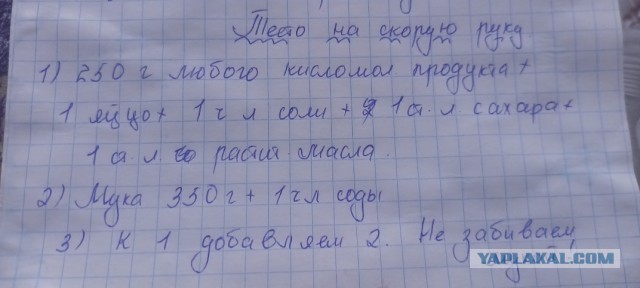 Тесто на скорую руку
1) 250 г любого кисломол продукта +
1 яйцо + 1 ч л соли + 1 ст. л. сахара +
1 ст. л растит. масла.
2) Мука 350 г + 1 ч л соды
3) К 1 добавляем 2. Не забиваем
YAPLAKAL.COM